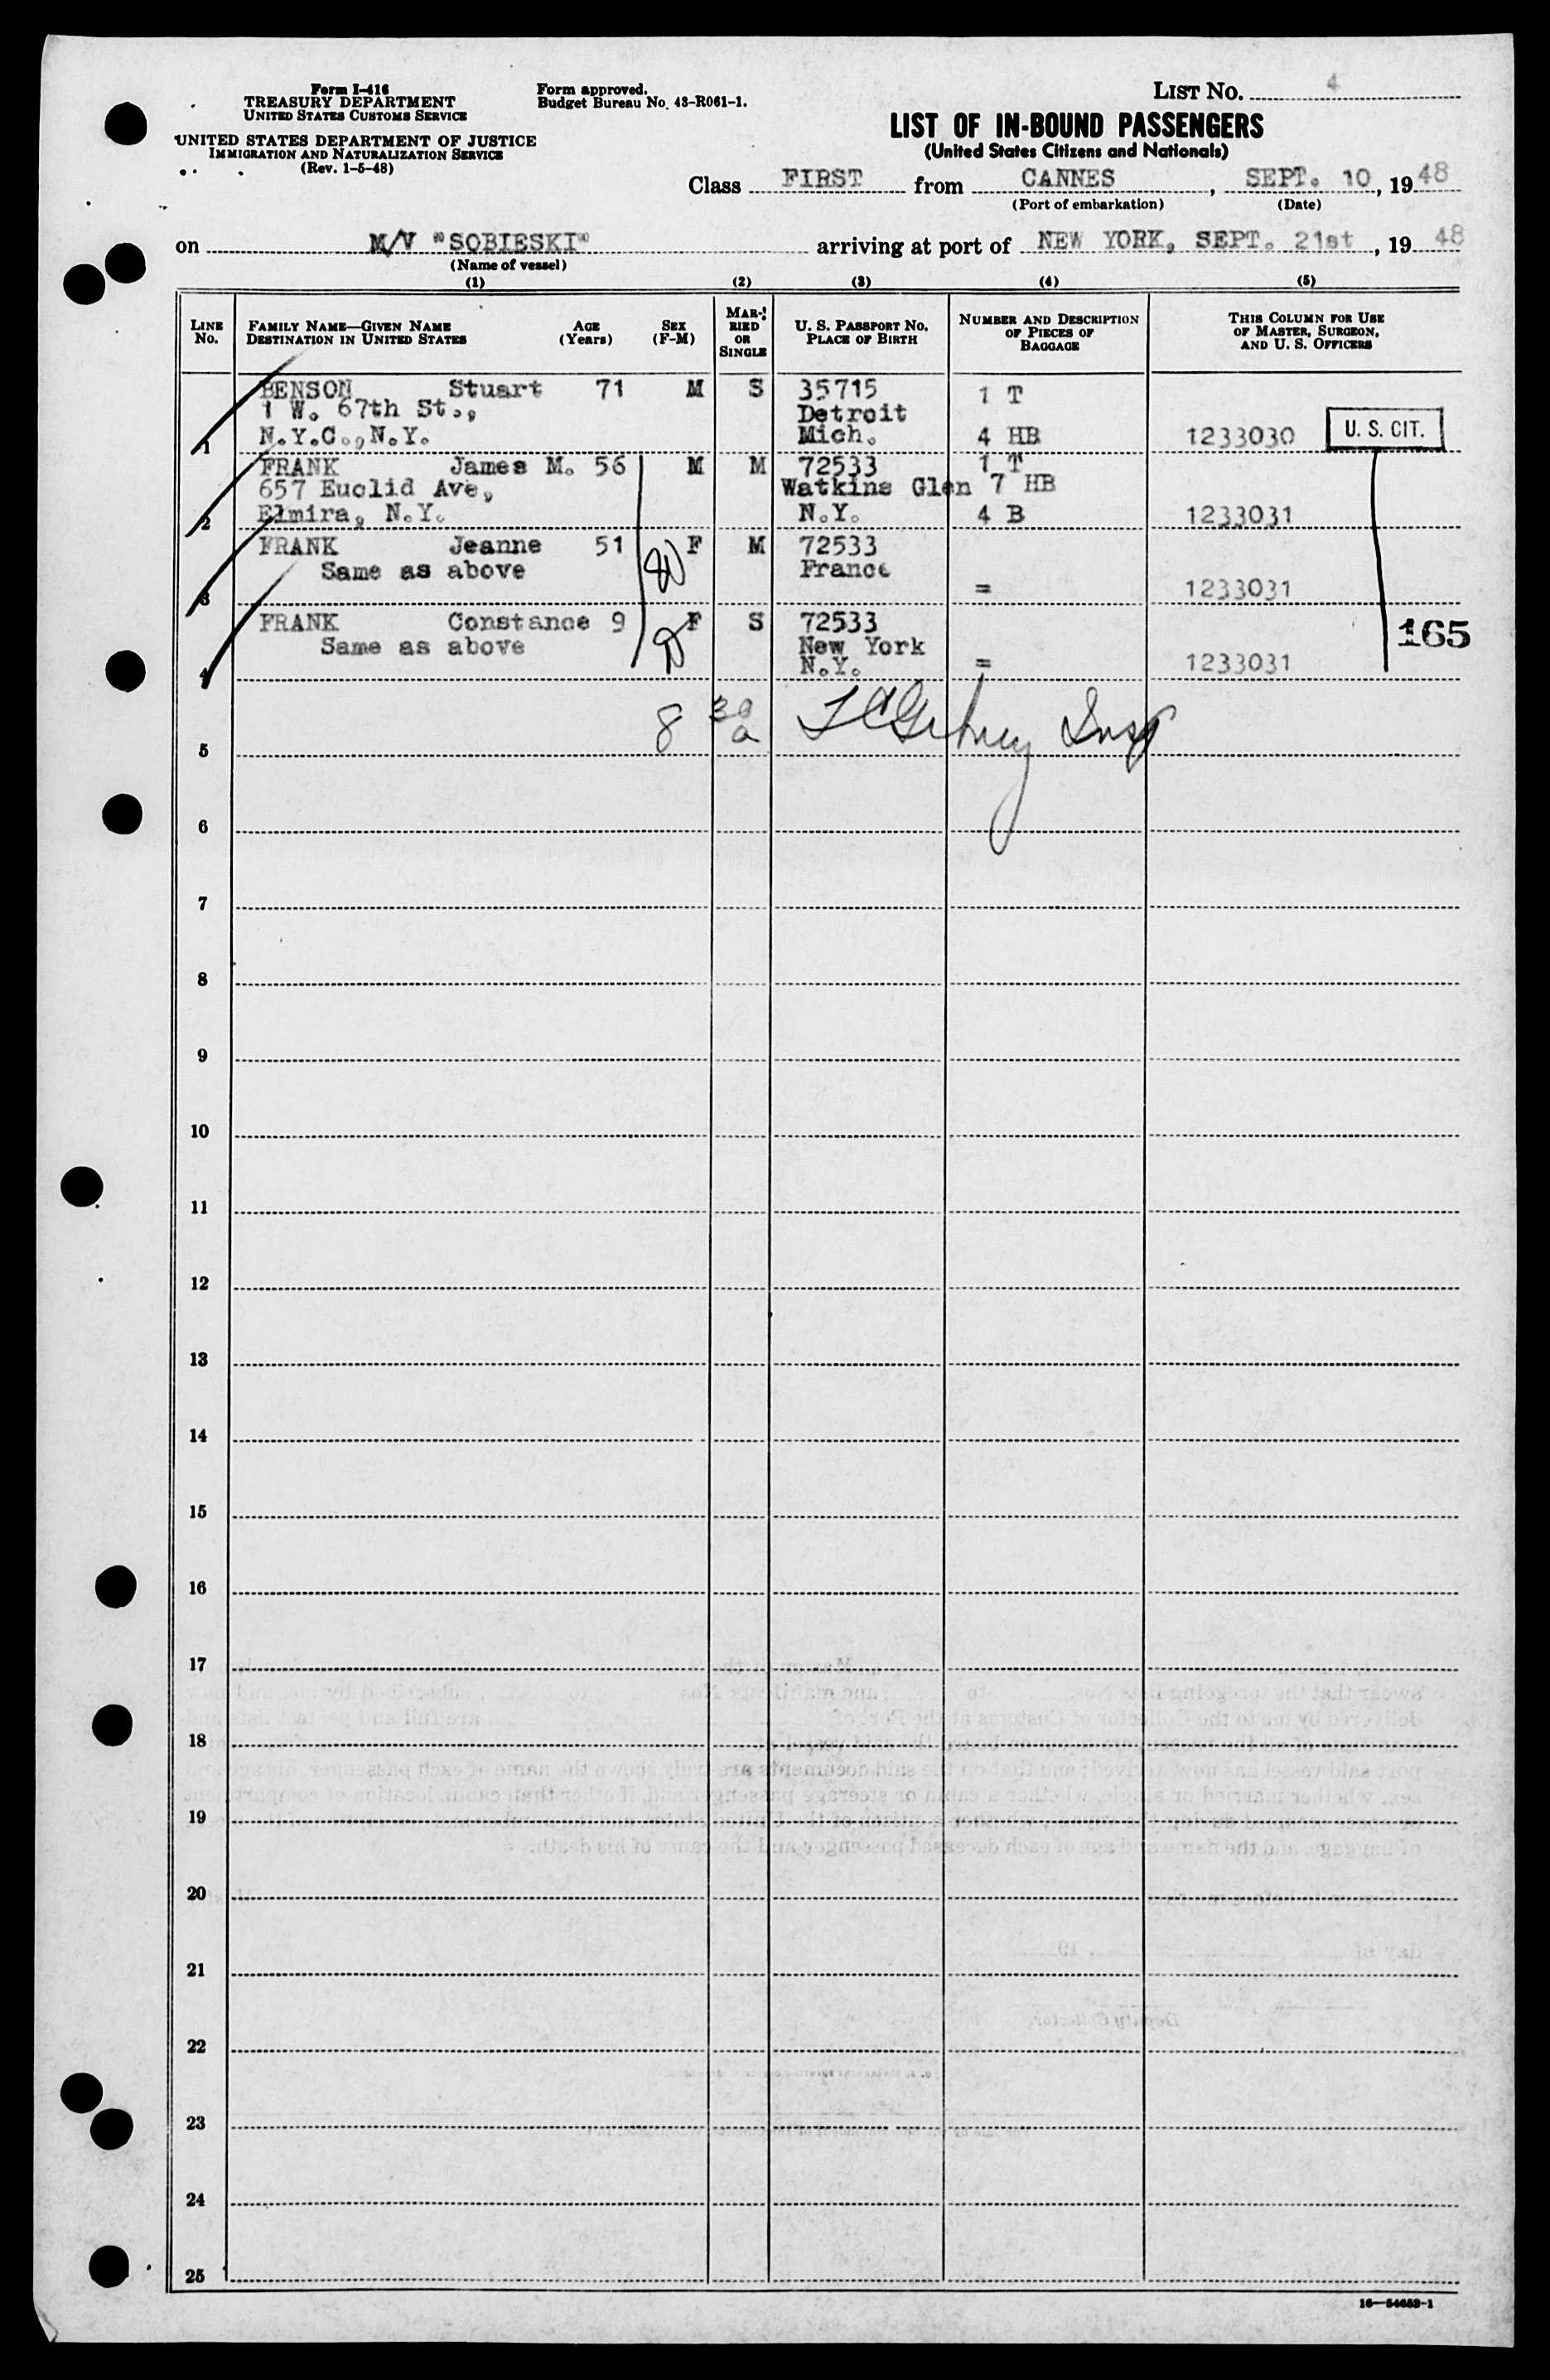 Form I-416
TREASURY DEPARTMENT
UNITED STATES CUSTOMS SERVICE
UNITED STATES DEPARTMENT OF JUSTICE
IMMIGRATION AND NATURALIZATION SERVICE
(Rev. 1-5-48)
Form approved.
Budget Bureau No. 43-R061-1.
LIST No. 4
LIST OF IN-BOUND PASSENGERS
(United States Citizens and Nationals)
Class FIRST from CANNES, SEPT. 10, 1948
(Port of embarkation) (Date)
on M/V "SOBIESKI" arriving at port of NEW YORK, SEPT. 21st, 1948
(Name of vessel)
(1) (2) (3) (4) (5)
LINE No.
FAMILY NAME—GIVEN NAME
DESTINATION IN UNITED STATES
AGE (Years)
SEX (F-M)
MAR-RIED OR SINGLE
U. S. PASSPORT NO.
PLACE OF BIRTH
NUMBER AND DESCRIPTION OF PIECES OF BAGGAGE
THIS COLUMN FOR USE OF MASTER, SURGEON, AND U. S. OFFICERS
BENSON Stuart 71 M S 35715 1 T
1 W. 67th St., Detroit
1 N.Y.C., N.Y. Mich. 4 HB 1233030 U. S. CIT.
FRANK James M. 56 M M 72533 1 T
657 Euclid Ave, Watkins Glen 7 HB
2 Elmira, N.Y. N.Y. 4 B 1233031
FRANK Jeanne 51 F M 72533
Same as above France
3 = 1233031
FRANK Constance 9 F S 72533
Same as above New York 165
4 N.Y. = 1233031
8 30 a Insp
5
6
7
8
9
10
11
12
13
14
15
16
17
18
19
20
21
22
23
24
25
16—54653-1